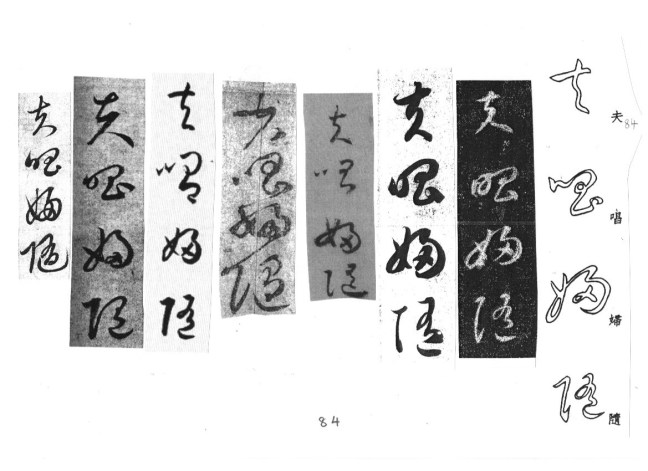 84
夫唱婦隨
夫唱婦隨
夫唱婦隨
夫唱婦隨
夫唱婦隨
夫唱婦隨
夫唱婦隨
夫唱婦隨
夫唱婦隨
84